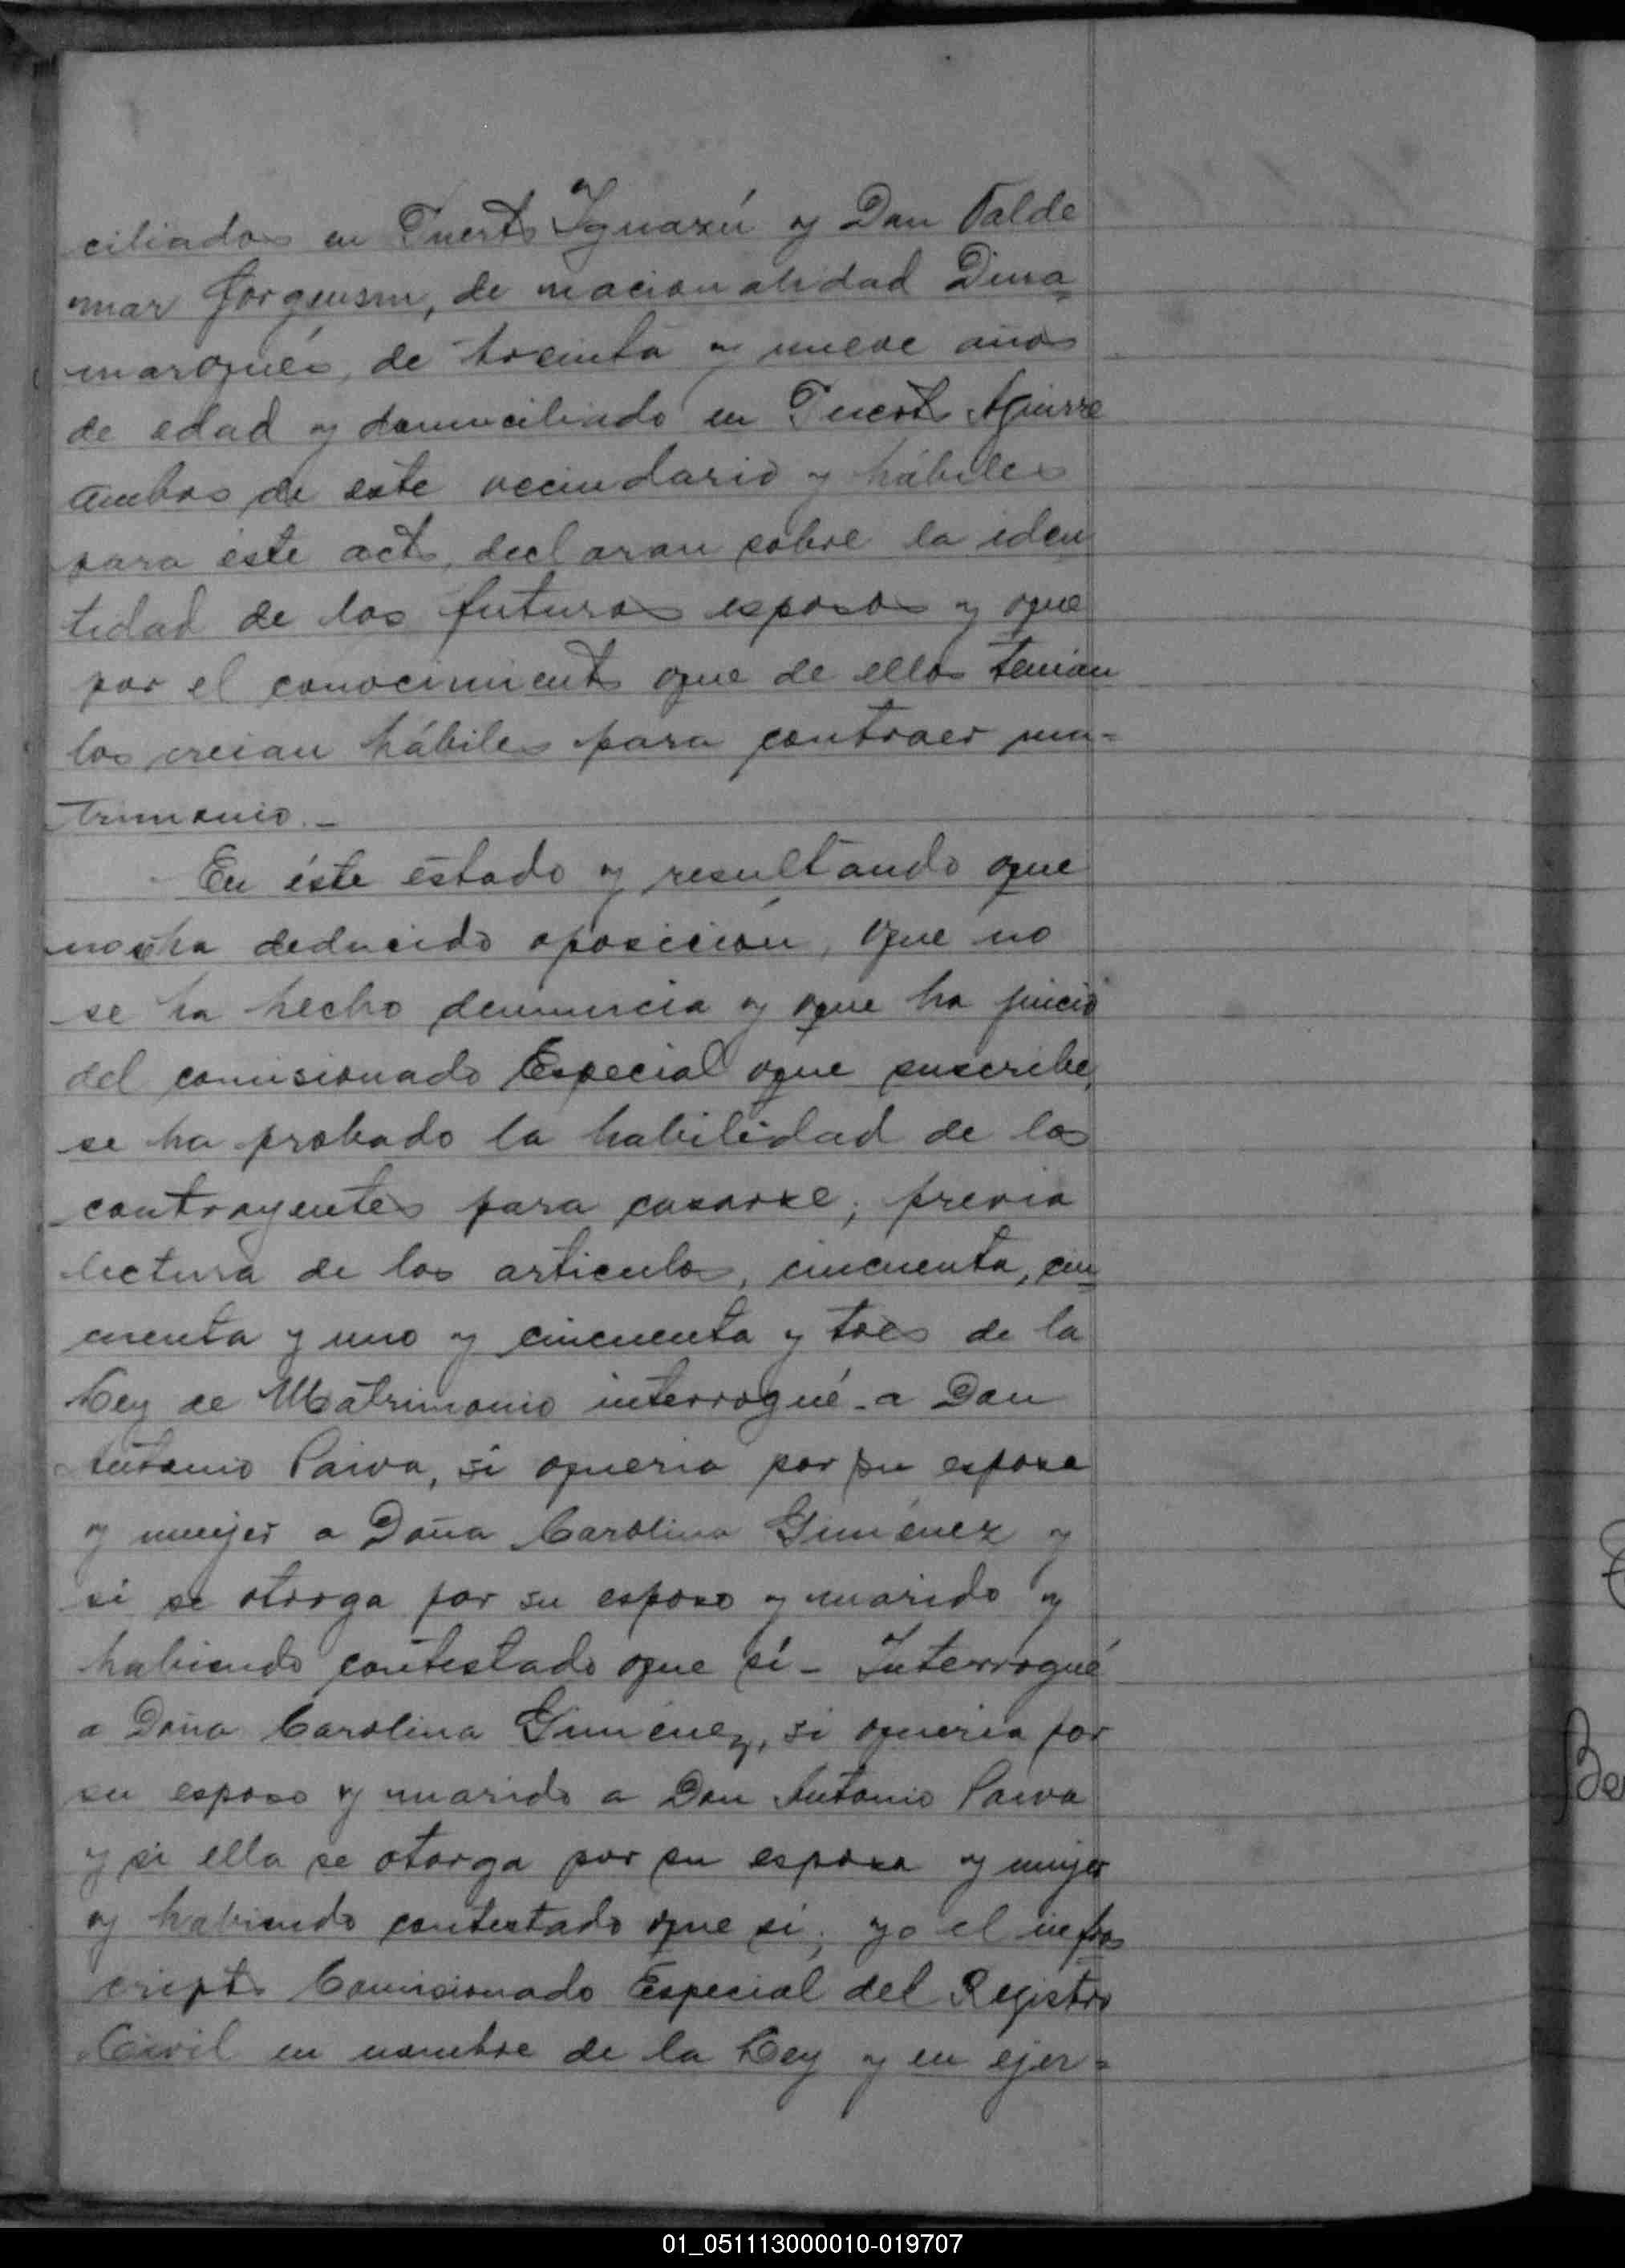 ciliados en Puerto Yguazú y Don Valde
mar Jorgensen, de nacionalidad Dina=
marqués, de treinta y nueve años
de edad y domiciliado en Puerto Aguirre
ambos de este vecindario y hábiles
para éste acto, declaran sobre la iden
tidad de los futuros esposos y que
por el conocimiento que de ellos tenian
los creian hábiles para contraer ma=
trimonio.-
En éste estado y resultando que
no se ha deducido oposición, que no
se ha hecho denuncia y que ha juicio
del comisionado Especial que suscribe,
se ha probado la habilidad de los
contrayentes para casarse; previa
lectura de los articulos, cincuenta, cin=
cuenta y uno y cincuenta y tres de la
Ley de Matrimonio interrogué a Don
Antonio Paiva, si queria por su esposa
y mujer a Doña Carolina Giménez y
si se otorga por su esposo y marido y
habiendo contestado que sí - Interrogué
a Doña Carolina Giménez, si queria por
su esposo y marido a Don Antonio Paiva
y si ella se otorga por su esposa y mujer
y habiendo contestado que sí; yo el infras
cripto Comisionado Especial del Registro
Civil en nombre de la Ley y en ejer=
Be
01_051113000010-019707